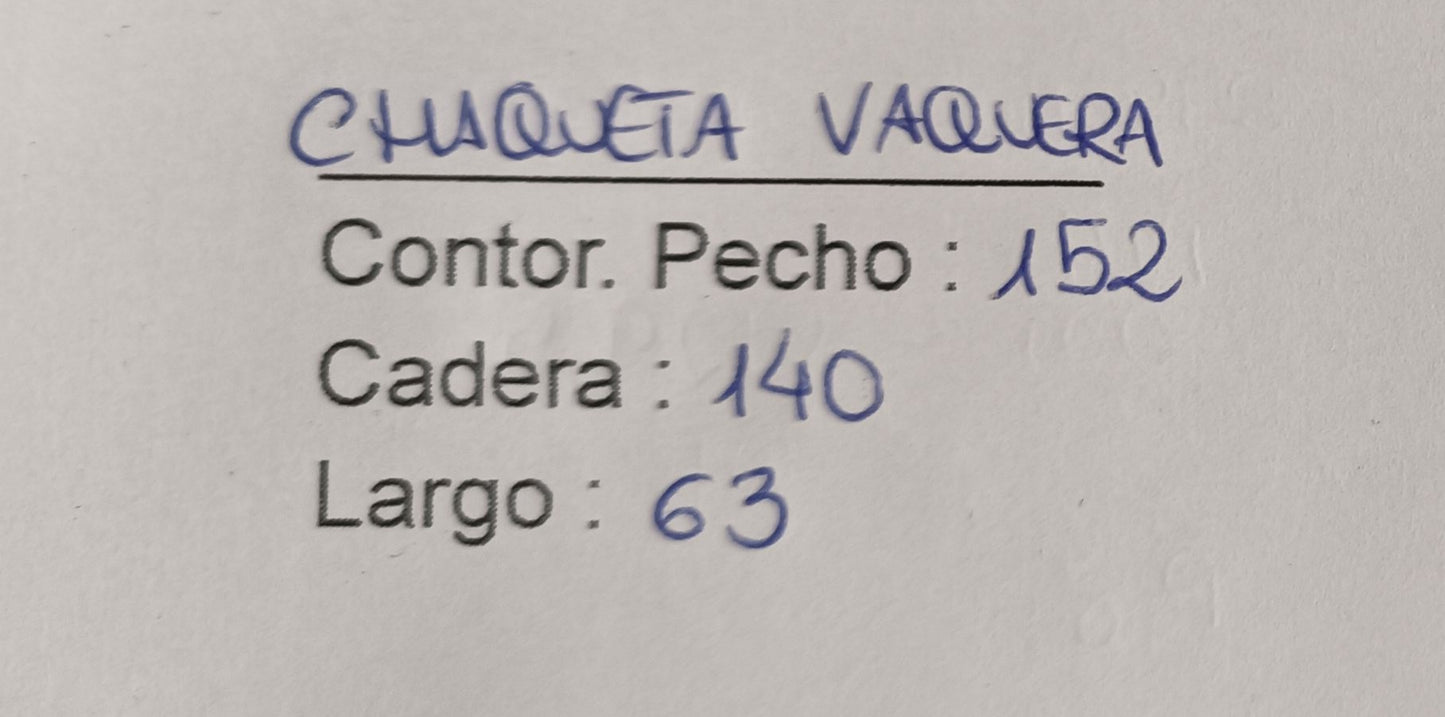 CHAQUETA VAQUERA
Contor. Pecho : 152
Cadera : 140
Largo : 63